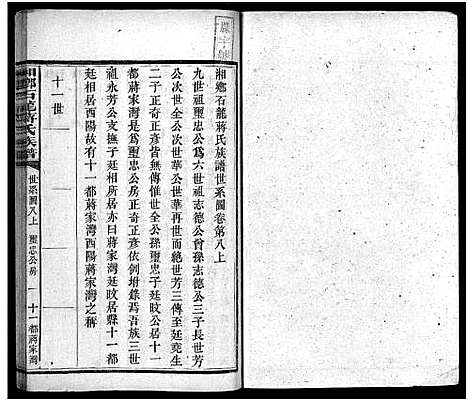 湘鄉石龍蔣氏族譜世系圖卷第八上
九世祖璽忠公爲六世祖志德公曾孫志德公三子長世芳
公次世全公次世華公世華再世而絶世芳三傳至廷堯生
二子正奇正彥皆無傳惟世全公孫璽忠子廷旼公居十一
都蔣家灣是爲璽忠公房正奇正彥依例坿錄焉吾族三世
祖永芳公支撫子廷相所居亦曰蔣家灣廷旼居縣十一都
廷相居酉陽故有十一都蔣家灣酉陽蔣家灣之稱
十一世
湘鄉石龍蔣氏族譜
世系圖八上
璽忠公房
一
十一都蔣家灣